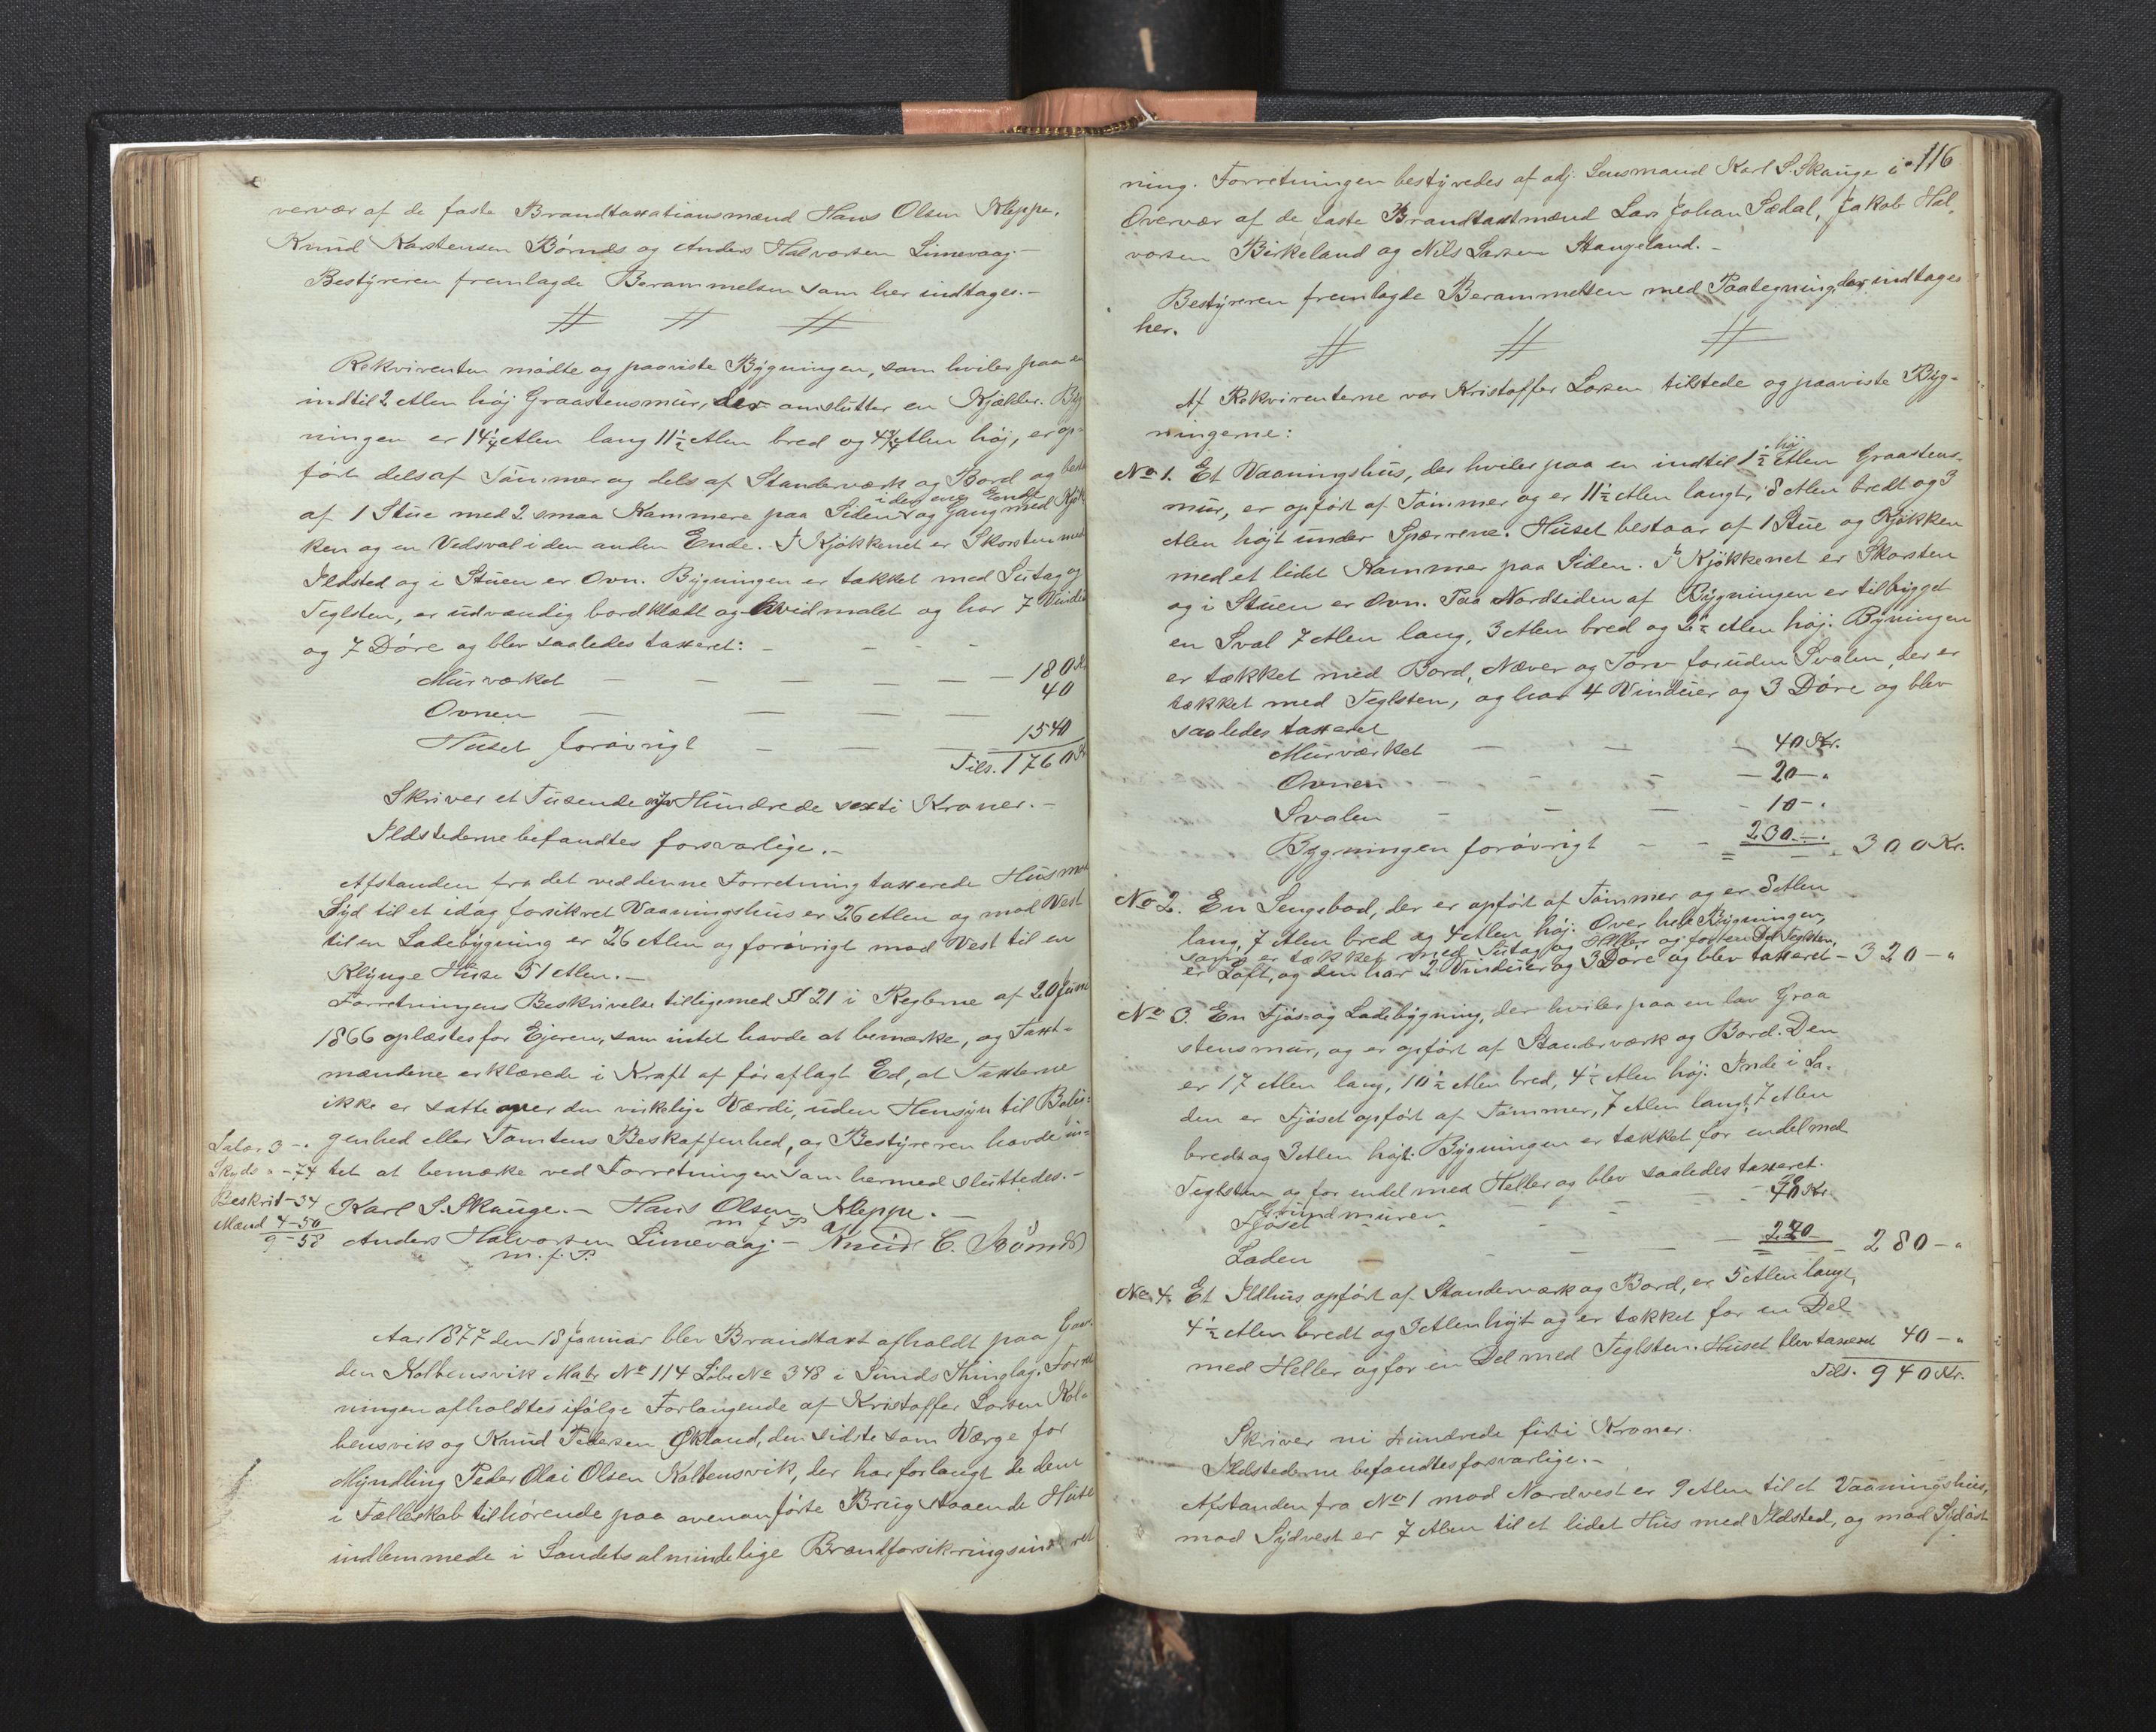 vervær af de faste Brandtaxationsmænd Hans Olsen Kleppe,
Knud Karstensen Børnds og Anders Halvorsen Limevaag.
Bestÿreren fremlagde Berammelsen som her indtages.-
# # #
Rekvirenten mødte og paaviste Bÿgningen, som hviler paa en
indtil 2 Alen høj Graastensmur, der omslutter en Kjælder. Byg
ningen er 14¼ Alen lang 11½ Alen bred og 4¾ Alen høj, er op=
ført dels af Tømmer og dels af Standerværk og Bord og best
af 1 Stue med 2 smaa Kammere paa Siden og Gang med Kjøk
i den ene Ende
ken og en Vedsval i den anden Ende. I Kjøkkenet er Skorsten med
Ildsted og i Stuen er Ovn. Bÿgningen er tækket med Sutag og
Teglsten, er udvændig bordklædt og hvidmalet og har 7 Vindu
og 7 Døre og blev saaledes taxeret: - - - -
Murværket - - - - - - 180 Kr
Ovnen - - - - 40
Huset forøvrigt - - - 1540
Tils. 1760 Kr
Skriver et Tusende syv Hundrede sexti Kroner.-
Ildstederne befandtes forsvarlige.-
Afstanden fra det ved denne Forretning taxerede Hus mod
Sÿd til et idag forsikret Vaaningshus er 26 Alen og mod Vest
til en Ladebÿgning er 26 Alen og forøvrigt mod Vest til en
Klÿnge Huse 51 Alen.-
Forretningens Beskrivelse tilligemed § 21 i Reglerne af 20 Juni
1866 oplæstes for Ejeren, som intet havde at bemærke, og Taxt-
mændene erklærede i Kraft af før aflagt Ed, at Taxterne
ikke er satte over den virkelige Værdi, uden Hensÿn til Belig=
genhed eller Tomtens Beskaffenhed, og Bestÿreren havde in=
tet at bemærke ved Forretningen som hermed sluttedes.-
Salar 3 -.
Skyds " - 74
Beskrit - 34
Mænd 4 - 50
9 - 58
Karl S. Skauge.- Hans Olsen Kleppe.-
m f P
Anders Halvorsen Limevaag - Knud C. Børnds
m. f. P.
Aar 1877 den 18 Januar blev Brandtaxt afholdt paa Gaar
den Kolbensvik Matr No 114 Løbe No 348 i Sunds Thinglag. Forret
ningen afholdtes ifølge Forlangende af Kristoffer Larsen Kol=
bensvik og Knud Pedersen Økland, den sidste som Værge for
Mÿndling Peder Olai Olsen Kolbensvik, der har forlangt de dem
i Fælleskab tilhørende paa ovenanførte Brug staaende Huse
indlemmede i Landets almindelige Brandforsikringsindret
116
ning. Forretningen bestÿredes af adj. Lensmand Karl S. Skauge i
Overvær af de faste Brandtaxtmænd Lars Johan Sædal, Jakob Hal,
vorsen Birkeland og Nils Larsen Stangeland.-
Bestÿreren fremlagde Berammelsen med Paategning, der indtages
her.
# # #
Af Rekvirenterne var Kristoffer Larsen tilstede og paaviste Byg-
ningerne:
No 1. Et Vaaningshus, der hviler paa en indtil 1½ Alen Graastens-
høj
mur, er opført af Tømmer og er 11½ Alen langt, 8 Alen bredt og 3
Alen højt under Spærrene. Huset bestaar af 1 Stue og Kjøkken
med et lidet Kammer paa Siden. I Kjøkkenet er Skorsten
og i Stuen er Ovn. Paa Nordsiden af Bÿgningen er tilbygget
en Sval 7 Alen lang, 3 Alen bred og 2½ Alen høj. Byningen
er tækket med Bord, Næver og Torv foruden Svalen, der er
tækket med Teglsten, og har 4 Vinduer og 3 Døre og blev
saaledes taxeret
Murværket - - - 40 Kr.
Ovnen - - - - 20 - "
Svalen - - - - 10 - "
Bygningen forøvrigt - - 230 - . 300 Kr.
No 2. En Sengebod, der er opført af Tømmer og er 8 Alen
lang, 7 Alen bred og 4 Alen høj. Over hele Bÿgningen,
som er tækket med Sutag og Heller og for en Del Teglsten,
er Loft, og den har 2 Vinduer og 3 Døre og blev taxeret - 320 - "
No 3. En Fjøs- og Ladebÿgning, der hviler paa en lav Graa
stensmur, og er opført af Standerværk og Bord. Den
er 17 Alen lang, 10½ Alen bred, 4½ Alen høj. Inde i La-
den er Fjøset opført af Tømmer, 7 Alen langt, 7 Alen
bredt og 3 Alen højt. Bÿgningen er tækket for endel med
Teglsten og for endel med Heller og blev saaledes taxeret.
Grundmuren
Fjøset - - - - 40 Kr.
Laden - - - 220 - 280 - "
No. 4. Et Ildhus, opført af Standerværk og Bord, er 5 Alen langt,
4½ Alen bredt og 3 Alen højt og er tækket for en Del
med Heller og for en Del med Teglsten. Huset blev taxeret 40 - "
Tils. 940 Kr.
Skriver ni hundrede firti Kroner.
Ildstederne befandtes forsvarlige.-
Afstanden fra No 1 mod Nordvest er 9 Alen til et Vaaningshus,
mod Sÿdvest er 7 Alen til et lidet Hus med Ildsted, og mod Sÿdøst